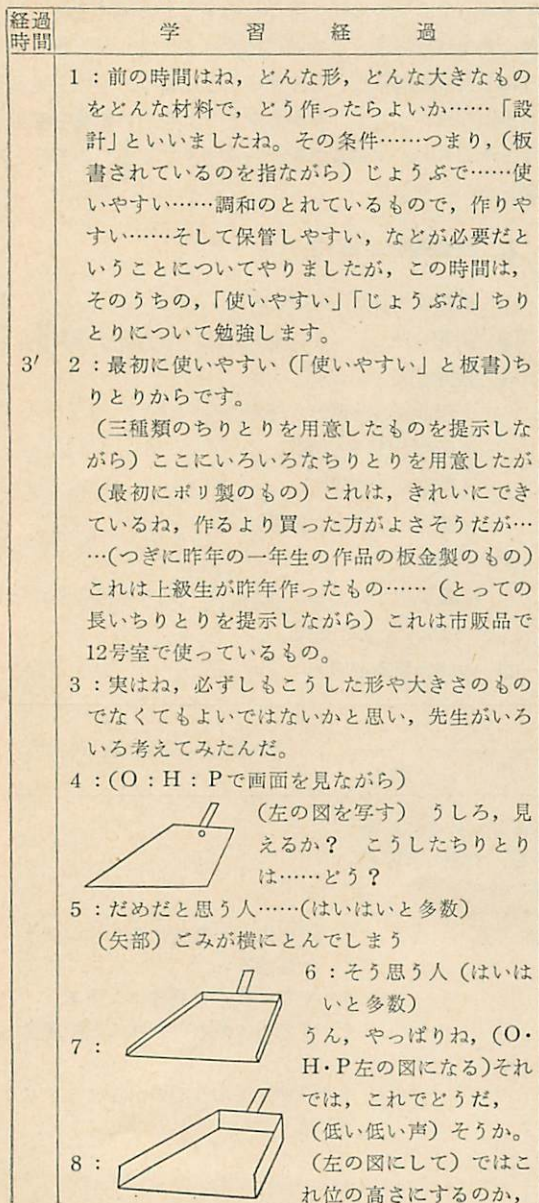 経過時間 学習経過
1:前の時間はね,どんな形,どんな大きなもの
をどんな材料で,どう作ったらよいか……「設
計」といいましたね。その条件……つまり,(板
書されているのを指ながら)じょうぶで……使
いやすい……調和のとれているもので,作りや
すい……そして保管しやすい,などが必要だと
いうことについてやりましたが,この時間は,
そのうちの,「使いやすい」「じょうぶな」ちり
とりについて勉強します。
3′ 2:最初に使いやすい(「使いやすい」と板書)ち
りとりからです。
(三種類のちりとりを用意したものを提示しな
がら)ここにいろいろなちりとりを用意したが
(最初にポリ製のもの)これは,きれいにでき
ているね,作るより買った方がよさそうだが…
…(つぎに昨年の一年生の作品の板金製のもの)
これは上級生が昨年作ったもの……(とっての
長いちりとりを提示しながら)これは市販品で
12号室で使っているもの。
3:実はね,必ずしもこうした形や大きさのもの
でなくてもよいではないかと思い,先生がいろ
いろ考えてみたんだ。
4:(O:H:Pで画面を見ながら)
(左の図を写す) うしろ,見
えるか? こうしたちりとり
は……どう?
5:だめだと思う人……(はいはいと多数)
(矢部)ごみが横にとんでしまう
6:そう思う人(はいは
いと多数)
7: うん,やっぱりね,(O・
H・P左の図になる)それ
では,これでどうだ,
(低い低い声)そうか。
8: (左の図にして)ではこ
れ位の高さにするのか,